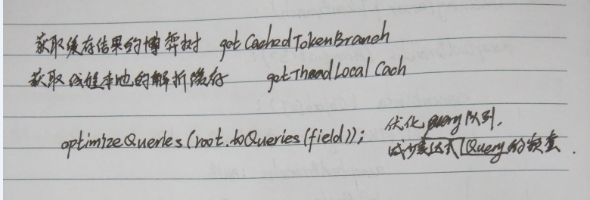 获取缓存结果的博弈树 getCachedTokenBranch
获取线程本地的解析缓存 getThreadLocal Cach
optimizeQueries(root.toQueries(field)); 优化query队列,
减少表达式Query的数量.